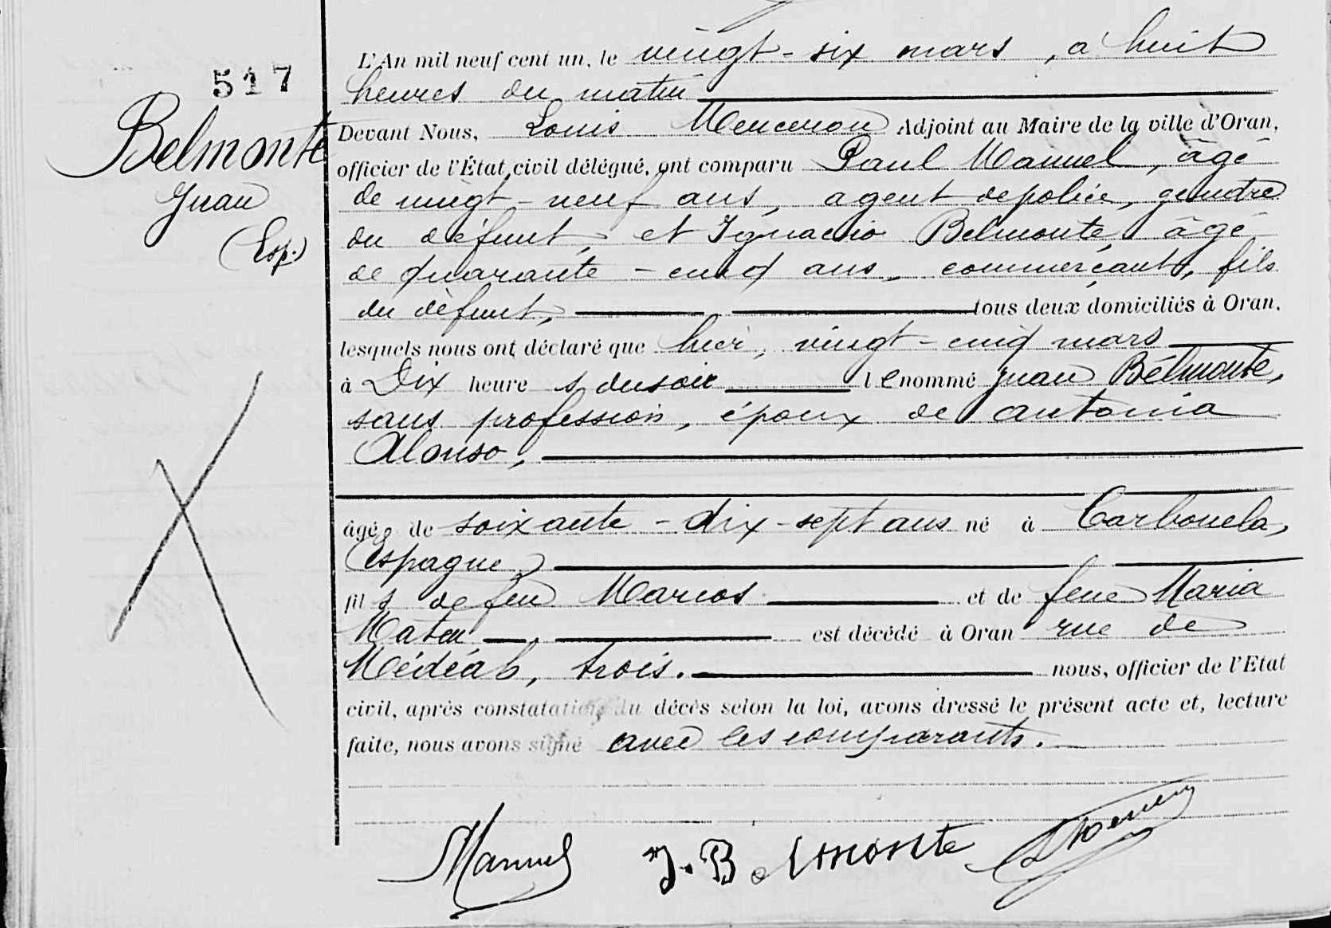 517
Belmonte
Juan
(Esp.)
L'An mil neuf cent un, le vingt-six mars, à huit
heures du matin
Devant Nous, Louis Menceron Adjoint au Maire de la ville d'Oran,
officier de l'État civil délégué, ont comparu Paul Manuel, âgé
de vingt-neuf ans, agent de police, gendre
du défunt, et Ignacio Belmonte, âgé
de quarante-cinq ans, commerçant, fils
du défunt, tous deux domiciliés à Oran,
lesquels nous ont déclaré que hier, vingt-cinq mars
à Dix heures du soir le nommé Juan Bélmonte,
sans profession, époux de Antonia
Alonso,
âgé de soixante-dix-sept ans né à Carbonela,
Espagne,
fils de feu Marcos et de feue Maria
est décédé à Oran rue de
Médéah, trois. nous, officier de l'Etat
civil, après constatation du décès selon la loi, avons dressé le présent acte et, lecture
faite, nous avons signé avec les comparants.
Manuel J. Belmonte